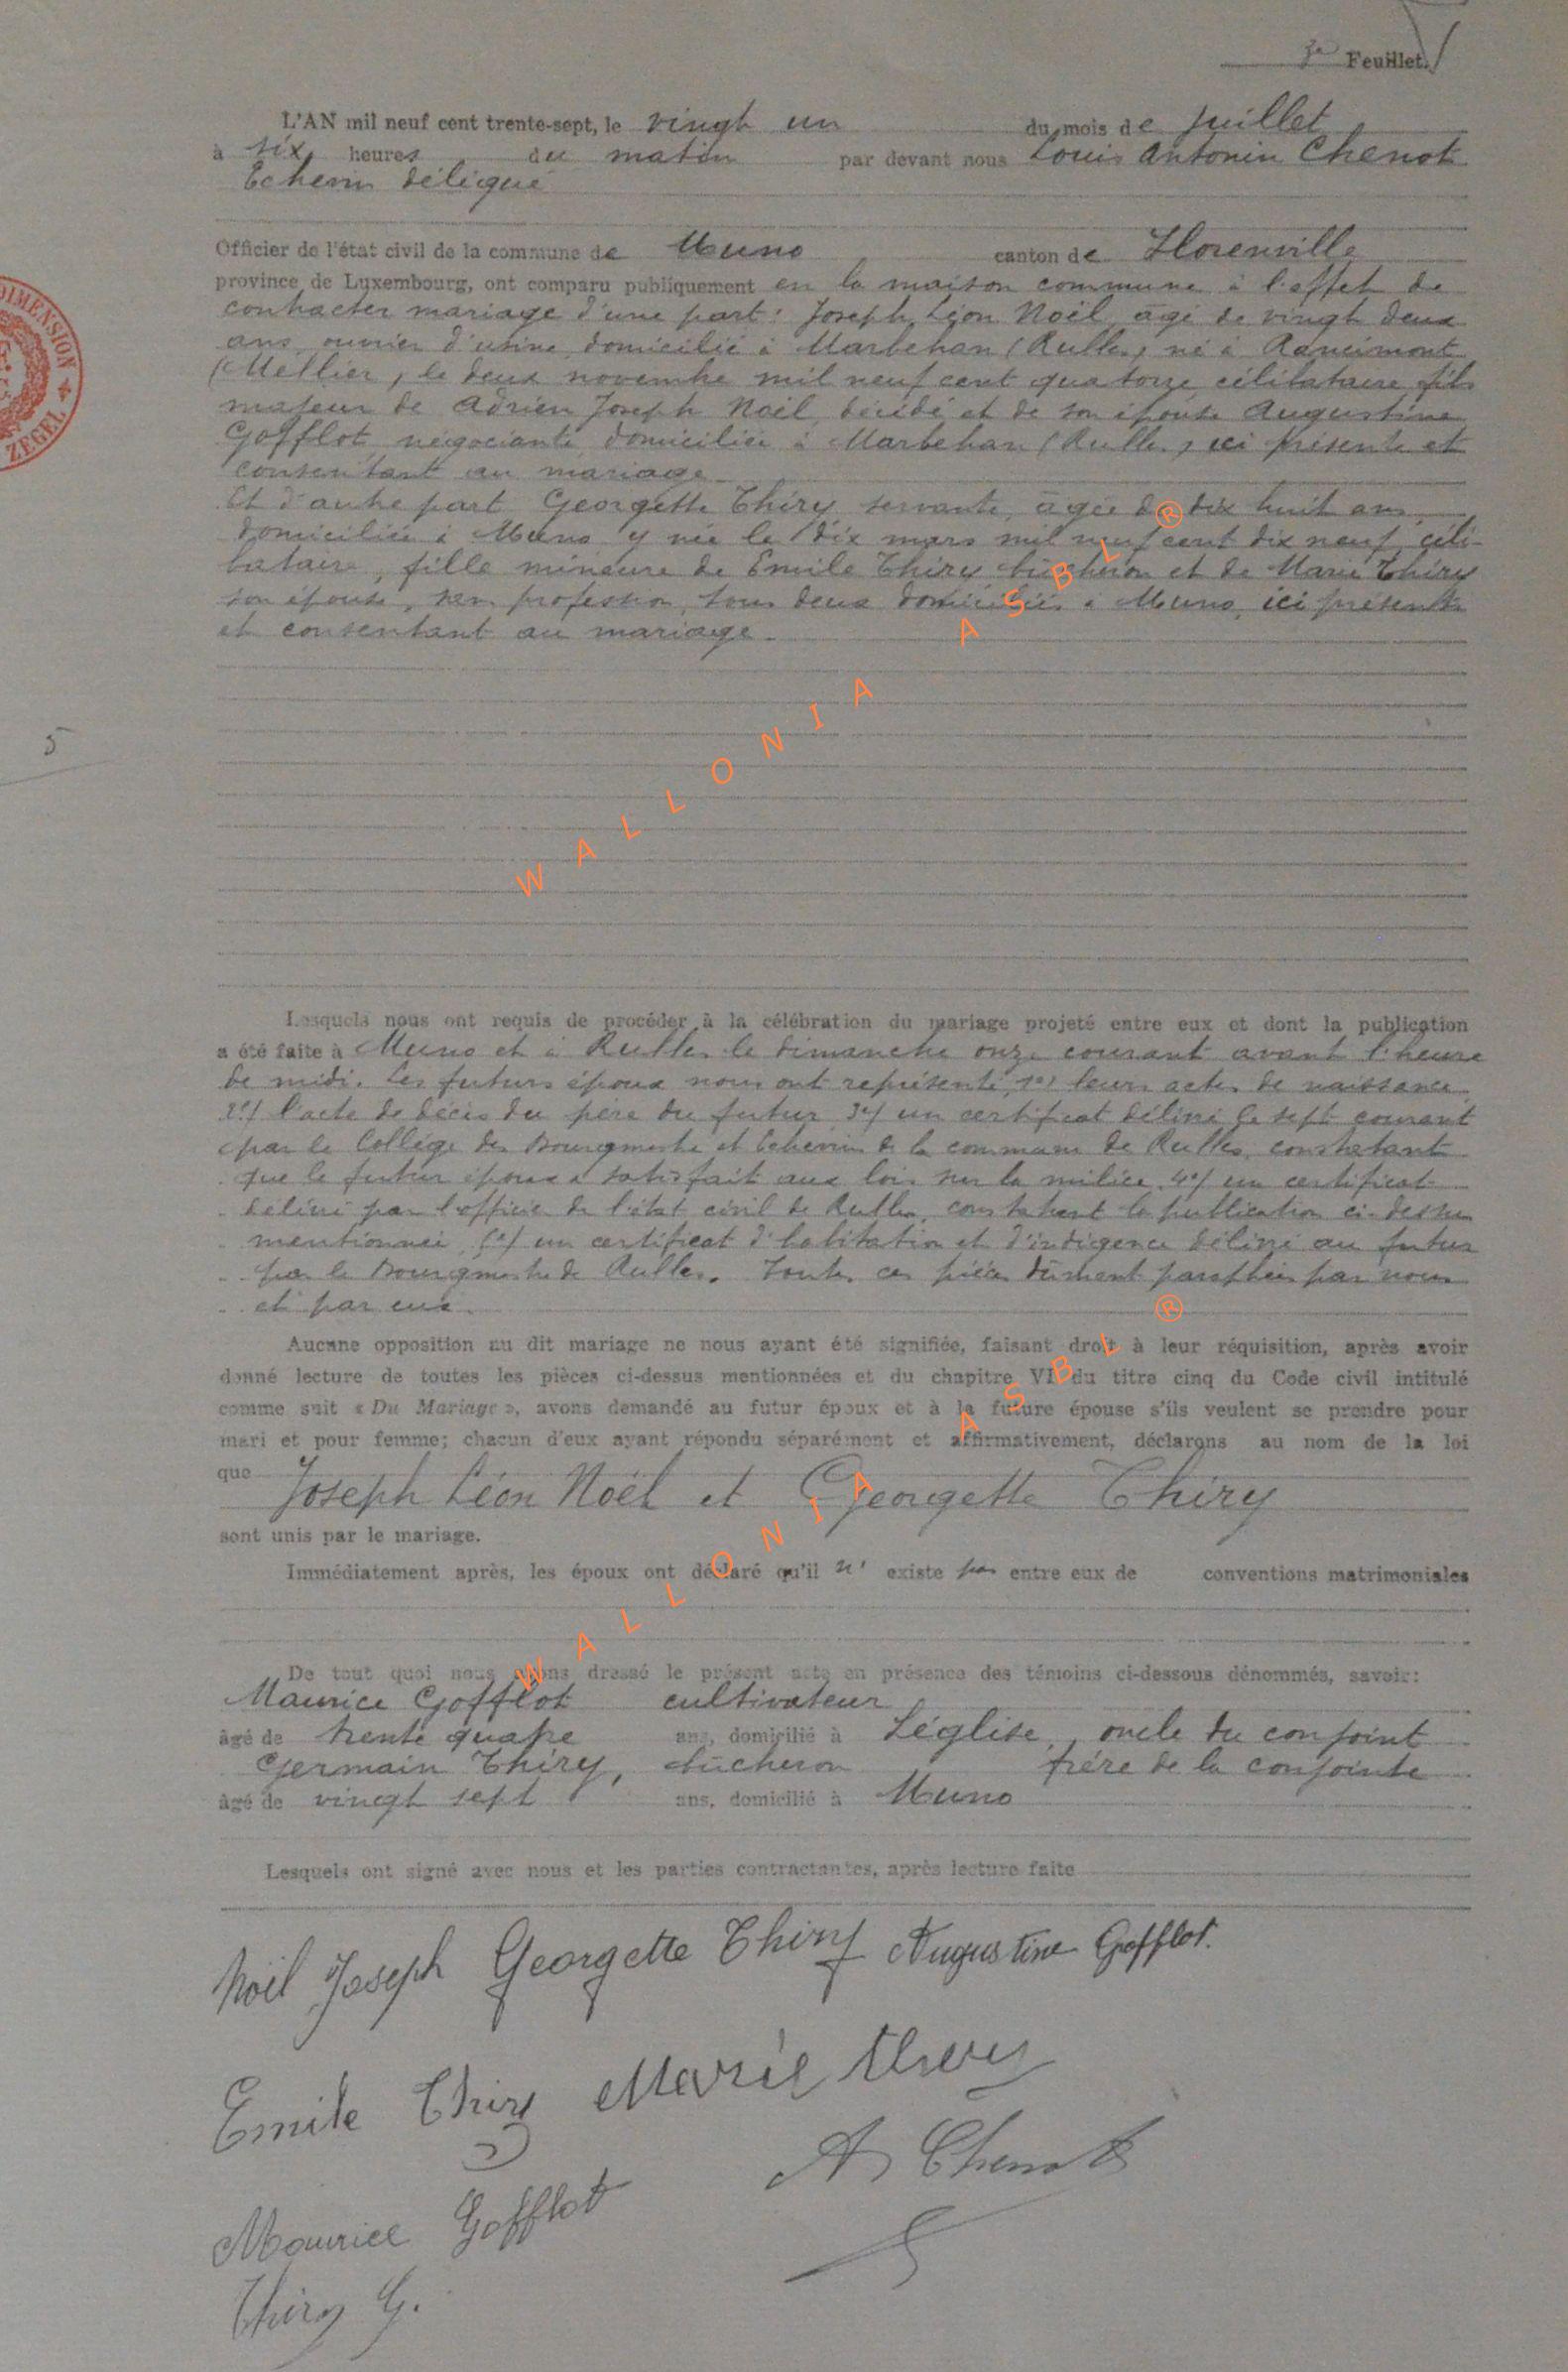 3e Feuillet.
L'AN mil neuf cent trente-sept, le vingt un du mois de juillet
à six heures du matin par devant nous Louis Antonin Chenot
Echevin délégué
Officier de l'état civil de la commune de Muno canton de Florenville
province de Luxembourg, ont comparu publiquement en la maison commune à l'effet de
contracter mariage d'une part : Joseph Léon Noël, âgé de vingt deux
ans, ouvrier d'usine, domicilié à Marbehan (Rulles) né à Rancimont
(Mellier), le deux novembre mil neuf cent quatorze, célibataire fils
majeur de Adrien Joseph Noël, décédé et de son épouse Augustine
Gofflot, négociante, domiciliée à Marbehan (Rulles) ici présente et
consentant au mariage
Et d'autre part Georgette Thiry servante, âgée de dix huit ans,
domiciliée à Muno y née le dix mars mil neuf cent dix neuf, céli-
bataire, fille mineure de Emile Thiry bûcheron et de Marie Thiry
son épouse, sans profession, tous deux domiciliés à Muno, ici présents
et consentant au mariage.
5
Lesquels nous ont requis de procéder à la célébration du mariage projeté entre eux et dont la publication
a été faite à Muno et à Rulles le dimanche onze courant avant l'heure
de midi. Les futurs époux nous ont représenté, 1°) leurs actes de naissance,
2°) l'acte de décès du père du futur 3°) un certificat délivré le sept courant
par le Collège des Bourgmestre et Echevins de la commune de Rulles, constatant
que le futur époux a satisfait aux lois sur la milice, 4°) un certificat
délivré par l'officier de l'état civil de Rulles, constatant la publication ci-dessus
mentionnée, 5°) un certificat d'habitation et d'indigence délivré au futur
par le Bourgmestre de Rulles. Toutes ces pièces dûment paraphées par nous
et par eux.
Aucune opposition au dit mariage ne nous ayant été signifiée, faisant droit à leur réquisition, après avoir
donné lecture de toutes les pièces ci-dessus mentionnées et du chapitre VI du titre cinq du Code civil intitulé
comme suit « Du Mariage », avons demandé au futur époux et à la future épouse s'ils veulent se prendre pour
mari et pour femme; chacun d'eux ayant répondu séparément et affirmativement, déclarons au nom de la loi
que Joseph Léon Noël et Georgette Thiry
sont unis par le mariage.
Immédiatement après, les époux ont déclaré qu'il n' existe pas entre eux de conventions matrimoniales
De tout quoi nous avons dressé le présent acte en présence des témoins ci-dessous dénommés, savoir :
Maurice Gofflot cultivateur
âgé de trente quatre ans, domicilié à Léglise, oncle du conjoint
Germain Thiry, bûcheron frère de la conjointe
âgé de vingt sept ans, domicilié à Muno
Lesquels ont signé avec nous et les parties contractantes, après lecture faite
Noël Joseph Georgette Thiry Augustine Gofflot.
Emile Thiry Marie Thiry
A Chenot
Maurice Gofflot
Thiry G.
DIMENSION
ZEGEL
WALLONIA ASBL ®
WALLONIA ASBL ®